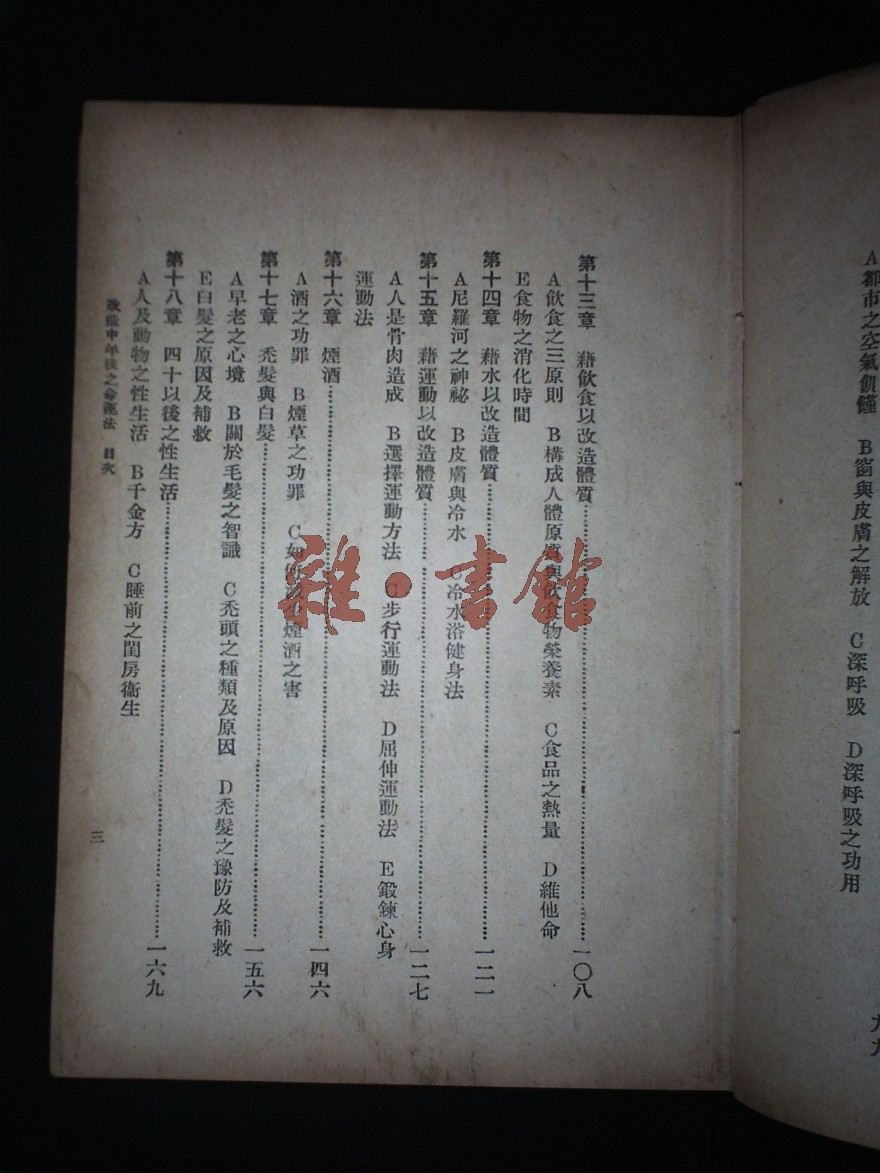 A都市之空氣饑饉　B窗與皮膚之解放　C深呼吸　D深呼吸之功用
九九
第十三章　藉飲食以改造體質……一〇八
A飲食之三原則　B構成人體原質與飲食物榮養素　C食品之熱量　D維他命
E食物之消化時間
第十四章　藉水以改造體質……一二一
A尼羅河之神祕　B皮膚與冷水　C冷水浴健身法
第十五章　藉運動以改造體質……一二七
A人是骨肉造成　B選擇運動方法　C步行運動法　D屈伸運動法　E鍛鍊心身
運動法
第十六章　煙酒……一四六
A酒之功罪　B煙草之功罪　C如何減少煙酒之害
第十七章　禿髮與白髮……一五六
A早老之心境　B關於毛髮之智識　C禿頭之種類及原因　D禿髮之豫防及補救
E白髮之原因及補救
第十八章　四十以後之性生活……一六九
A人及動物之性生活　B千金方　C睡前之閨房衞生
改造中年後之命運法　目次
三
雜·書館